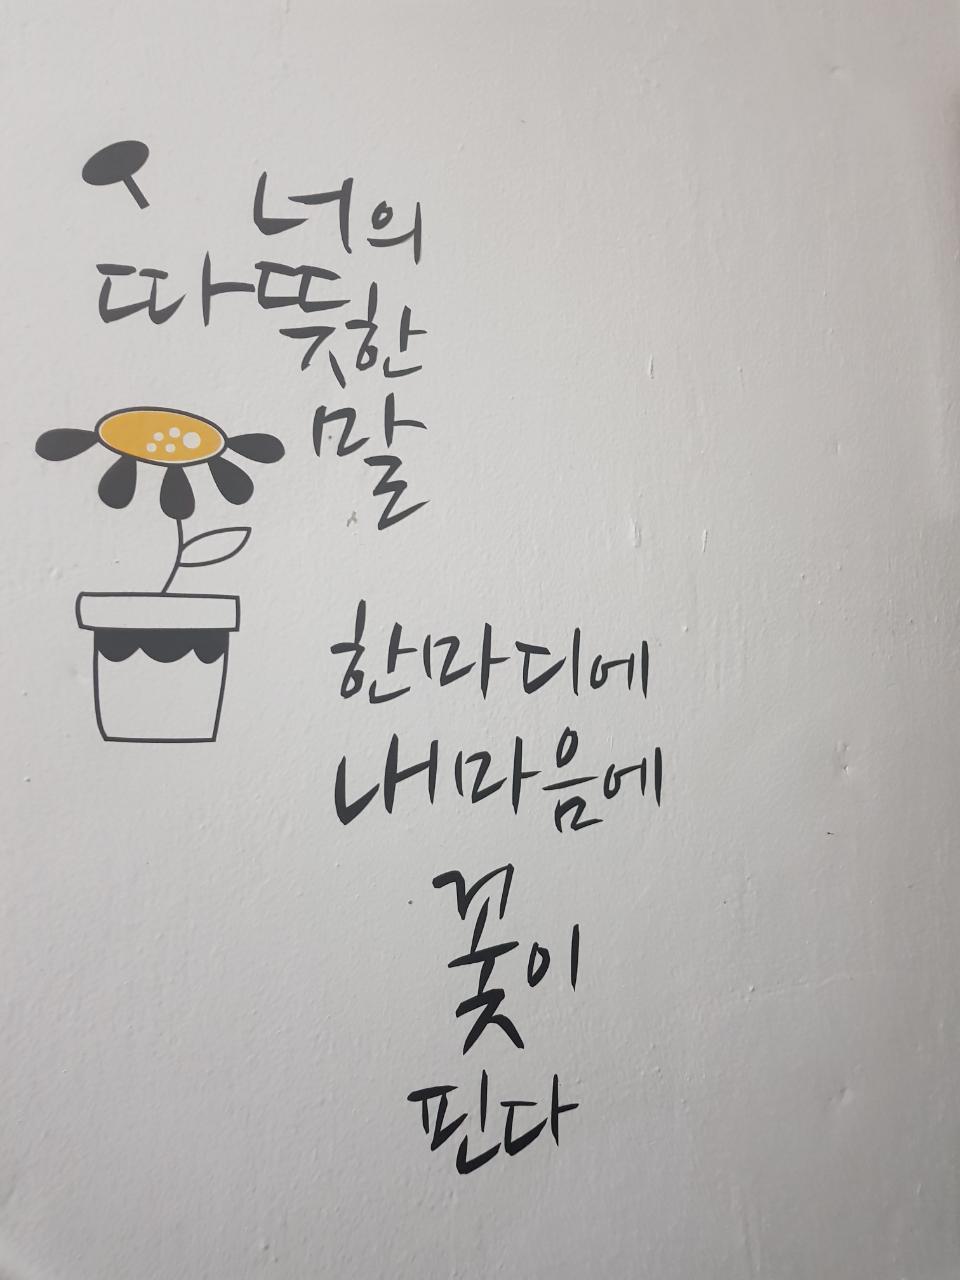 너의
따뜻한
말
한마디에
내마음에
꽃이
핀다